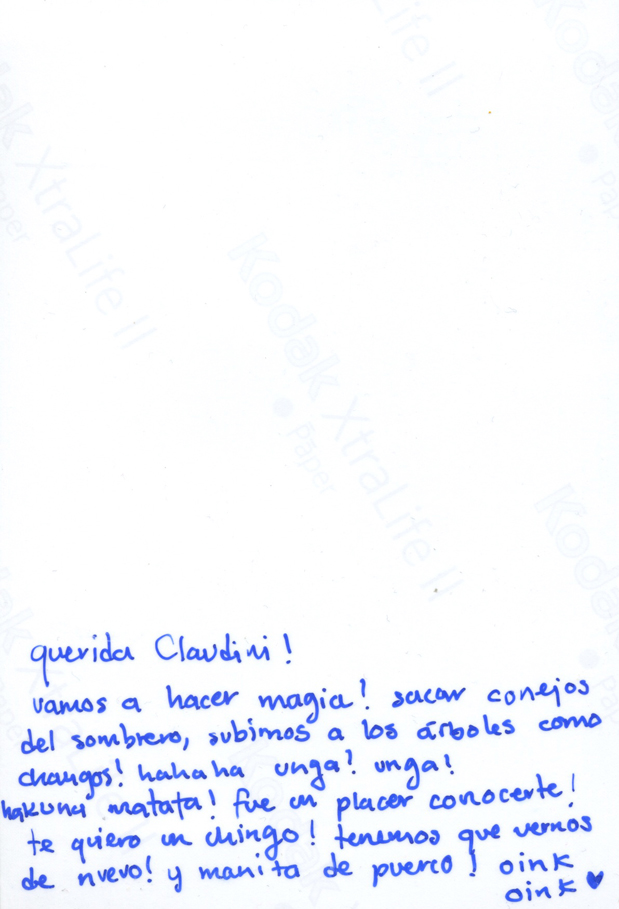 querida Claudini!
vamos a hacer magia! sacar conejos
del sombrero, subirnos a los árboles como
changos! hahaha unga! unga!
hakuna matata! fue un placer conocerte!
te quiero un chingo! tenemos que vernos
de nuevo! y manita de puerco! oink
oink ♥
Kodak XtraLife II
Paper